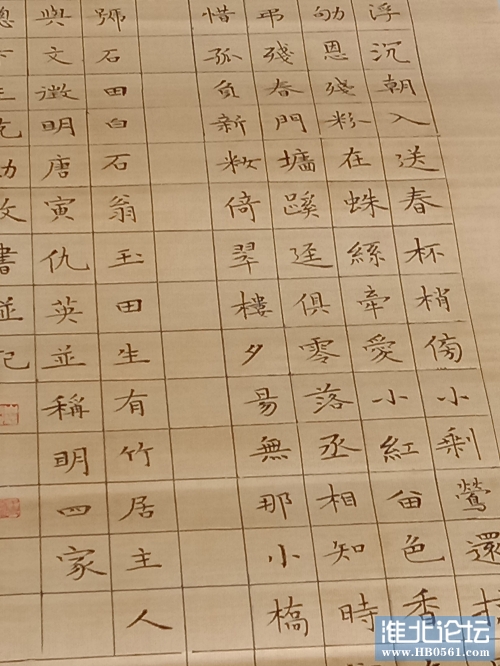 浮沉朝入送春杯梢傍小剩鶯還
劬恩殘粉在蛛絲牽愛小紅留色香
弔殘春門壚蹊迳俱零落丞相知時
惜孤負新妝倚翠樓夕昜無那小橋
號石田白石翁玉田生有竹居主人
與文徵明唐寅仇英並稱明四家
書並記
淮北论坛
www.HB0561.com